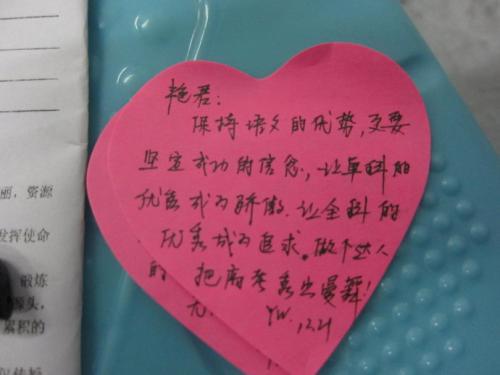 艳君:
保持语文的优势,更要
坚定成功的信念,让单科的
优秀成为骄傲.让全科的
优秀成为追求。做个达人
的 把高考舞出曼舞!
YW. 12.21
丽,资源
发挥使命
锻炼
源头,
累积的